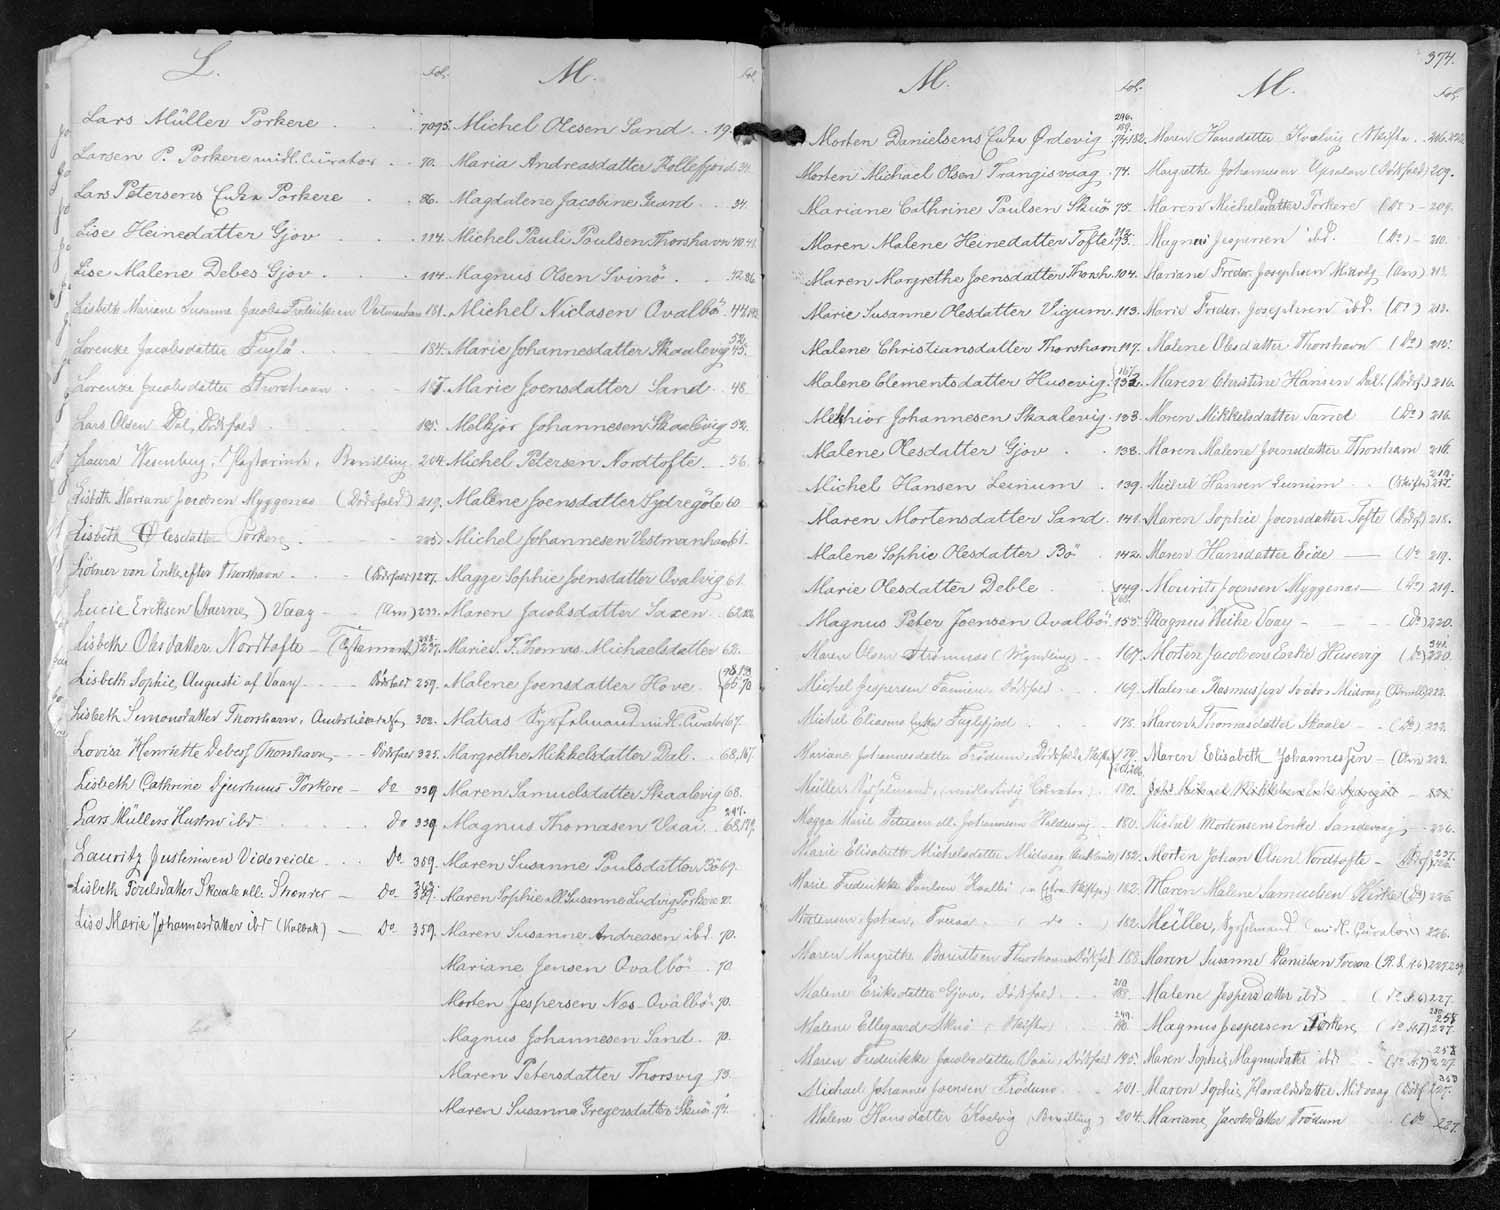 L.
fol.
Lars Müller Porkere 70 95.
Larsen P. Porkere midl. Curator 70.
Lars Petersens Enke Porkere 86.
Lise Heinedatter Gjov 114.
Lise Malene Debes Gjov 114.
Lisbeth Mariane Susanne Jacobs Frederiksen Vestmanhavn 181.
Lorenze Jacobsdatter Fuglö 184.
Lorenze Jacobsdatter Thorshavn 187.
Lars Olsen Dal, Dödsfald 185.
Laura Wesenberg, Bevilling 204.
Lisbeth Mariane Joensen Myggenæs (Dödsfald) 219.
Lisbeth Olesdatter Porkere 225.
Lötner von Enke efter Thorshavn (Dödsfald) 227.
Lucie Eriksen Vaag (Arv) 233.
Lisbeth Olesdatter Nordtofte (Testament) 237.
Lisbeth Sophie Augusti af Vaag Dödsfald 259.
Lisbeth Simonsdatter Thorshavn, 302.
Lovisa Henriette Debes Thorshavn Dödsfald 325.
Lisbeth Cathrine Djurhuus Porkere Do 339
Lars Müllers Hustru ibd Do 339
Lauritz Justinussen Vidareide Do. 369.
Lisbeth Poulsdatter Skaale
Lise Marie Johannesdatter ibd (Kalbak) Do 359.
M.
fol.
Michel Olesen Sand 19.
Maria Andreasdatter Kollefjord 31.
Magdalene Jacobine Gaard 34.
Michel Pauli Poulsen Thorshavn 40.41.
Magnus Olsen Svinö 42.86.
Michel Niclasen Qvalbö 44.
Marie Johannesdatter Skaalevig 52. 45.
Marie Joensdatter Sand 48
Melkjor Johannesen Skaalevig 52.
Michel Petersen Nordtofte 56.
Malene Joensdatter Sydregöte 60
Michel Johannesen Vestmanhavn 61.
Magge Sophie Joensdatter Qvalvig 61.
Maren Jacobsdatter Saxen 62.
Marie S. F. Thomas. Michaelsdatter 62.
Malene Joensdatter Hove 65 70
Matras Sysselmand midl. Curator 67.
Margrethe Mikkelsdatter Dal 68, 167.
Maren Samuelsdatter Skaalevig 68.
Magnus Thomasen Vaai 247. 68, 179.
Maren Susanne Poulsdatter Bö 69.
Maren Sophie all. Susanne Ludvig Porkere 70.
Maren Susanne Andreasen ibd 70.
Mariane Jensen Qvalbö 70
Morten Jespersen Næs Qvalbö 70.
Magnus Johannesen Sand 70.
Maren Petersdatter Thorsvig 73.
Maren Susanna Gregersdatter Skuö 74.
M.
fol.
Morten Danielsens Enke Ördevig 296. 189. 74.182.
Morten Michael Olsen Trangisvaag 74.
Mariane Cathrine Poulsen Skuö 75.
Maren Malene Heinedatter Tofte 112 93.
Maren Margrethe Joensdatter Thorsh. 104.
Marie Susanne Olesdatter Vigum 113.
Malene Christiansdatter Thorshavn 117.
Malene Clementsdatter Husevig 167 132.
Melchior Johannesen Skaalevig 133.
Malene Olesdatter Gjov 138.
Michel Hansen Leinum 139.
Maren Mortensdatter Sand 141.
Malene Sophie Olesdatter Bö 142.
Marie Olesdatter Deble 149.
Magnus Peter Joensen Qvalbö 155.
Maren Olsen Strömnæs (Myndling) 167.
Michel Jespersen Famien Dödsfald 169.
Michel Eliasens Enke Fuglefjord 178.
Mariane Johannesdatter Frödum, Dödsfald 179.
Müllers Sysselmand, (midlertidig Curator) 180.
Magga Marie Petersen all. Johannesen Haldersvig 180.
Marie Elisabeth Michelsdatter Midvaag 182.
Marie Frederikke Poulsen Kvalbö 182.
Mortensen, Johan, Tveraa (do) 182.
Maren Margrethe Berentsen Thorshavn Dödsfald 188.
Malene Eriksdatter Gjov, Dödsfald 210 188.
Malene Ellegaard Skuö (Skifte) 249. 190.
Maren Frederikke Jacobsdatter Vaai, Dödsfald 195.
Michael Johannes Joensen Frödum 201.
Malene Hansdatter Kvalvig (Bevilling) 204.
374.
M.
fol.
Maren Hansdatter Kvalvig (Skifte) 206.222.
Margrethe Johannesen (Dödsfald) 209.
Maren Michelsdatter Porkere (Do) 209.
Magnus Jespersen ibd. (Do) 210.
Mariane Freder. Josephsen Midvåg (Arv) 213.
Marie Freder. Josephsen ibd. (Do) 213.
Malene Olesdatter Thorshavn (Do) 215.
Maren Christine Hansen Dal (Dödsf.) 216.
Maren Mikkelsdatter Sand (Do) 216.
Maren Malene Joensdatter Thorshavn 216.
Michel Hansen Leinum (Skifte) 219. 217.
Maren Sophie Joensdatter Tofte (Dödsf.) 218.
Maren Hansdatter Eide (Do 219.
Mourits Joensen Myggenæs (Do) 219.
Magnus Heine Vaay (Do) 220.
Morten Jacobsens Enke Husevig (Do) 341. 220.
Malene Rasmussen Midvaag (Bevill.) 222.
Maren Thomasdatter Skaale (Do) 222.
Maren Elisabeth Johannessen (Arv 223.
Michel Mortensens Enke Sandevaag 226.
Morten Johan Olsen Nordtofte Dödsf. 237. 226.
Maren Malene Samuelsen Kirke (Do) 226.
Müller, Sysselmand (midl. Curator) 226.
Maren Susanne Danielsen Tveraa (R.S. 16) 227.
Malene Jespersdatter ibd 227.
Magnus Jespersen Porkere 258 227.
Maren Sophie Magnusdatter ibd 258 227.
Maren Sophie Haraldsdatter Midvaag (Dödsf. 227.
Mariane Jacobsdatter Frödum (Do 227.